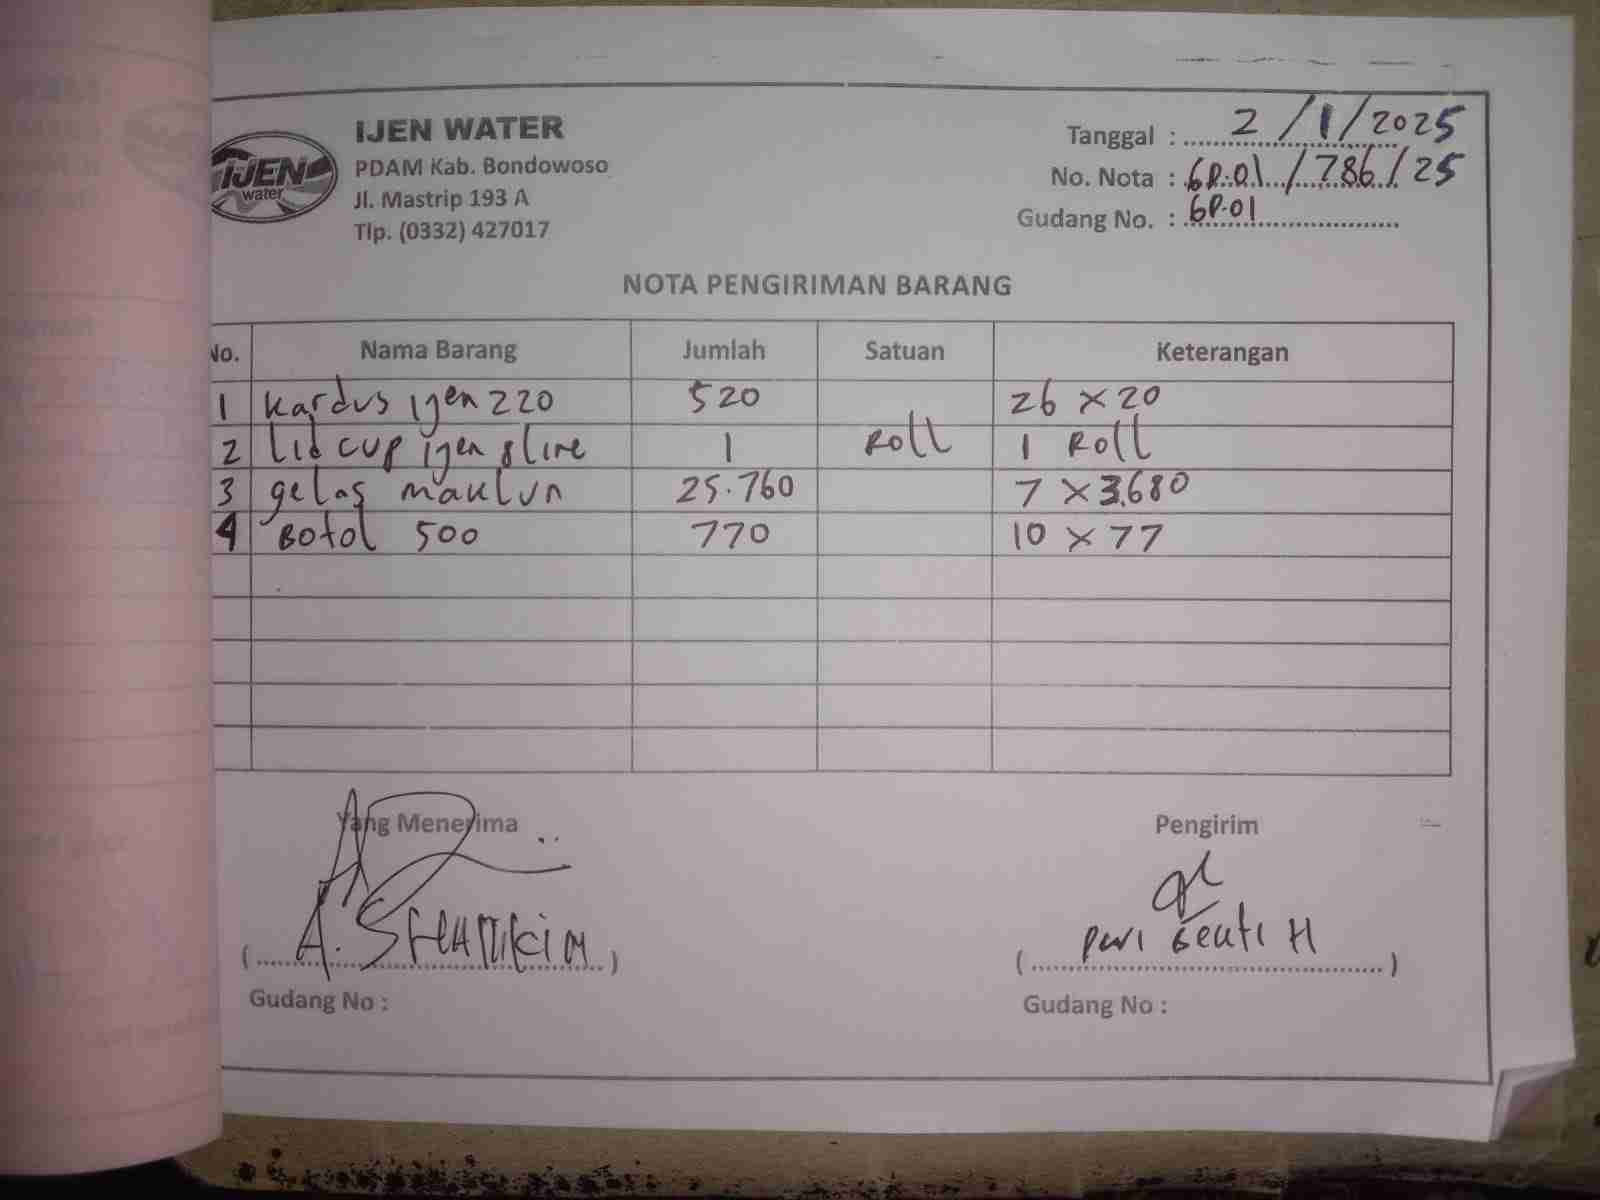 IJEN water
IJEN WATER
PDAM Kab. Bondowoso
Jl. Mastrip 193 A
Tlp. (0332) 427017
Tanggal : 2 / 1 / 2025
No. Nota : GP.01 / 786 / 25
Gudang No. : GP.01
NOTA PENGIRIMAN BARANG
No. Nama Barang Jumlah Satuan Keterangan
1 Kardus ijen 220 520 26 x 20
2 Lid cup ijen 8 line 1 Roll 1 Roll
3 gelas maklun 25.760 7 x 3.680
4 Botol 500 770 10 x 77
Yang Menerima Pengirim
( A. ) ( H )
Gudang No : Gudang No :